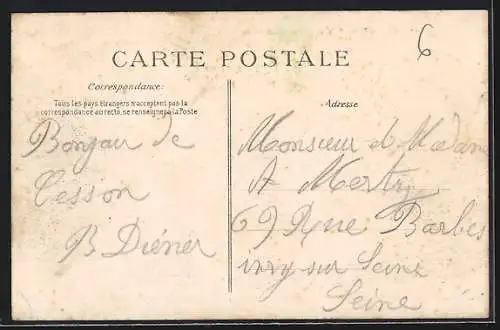 6
CARTE POSTALE
Correspondance:
Tous les pays étrangers n'acceptent pas la
correspondance au recto, se renseigner à la Poste
Adresse
Bonjour de
Cesson
B Diéner
Monsieur et Madam
A Mertz
69 Rue Barbes
ivry sur Seine
Seine